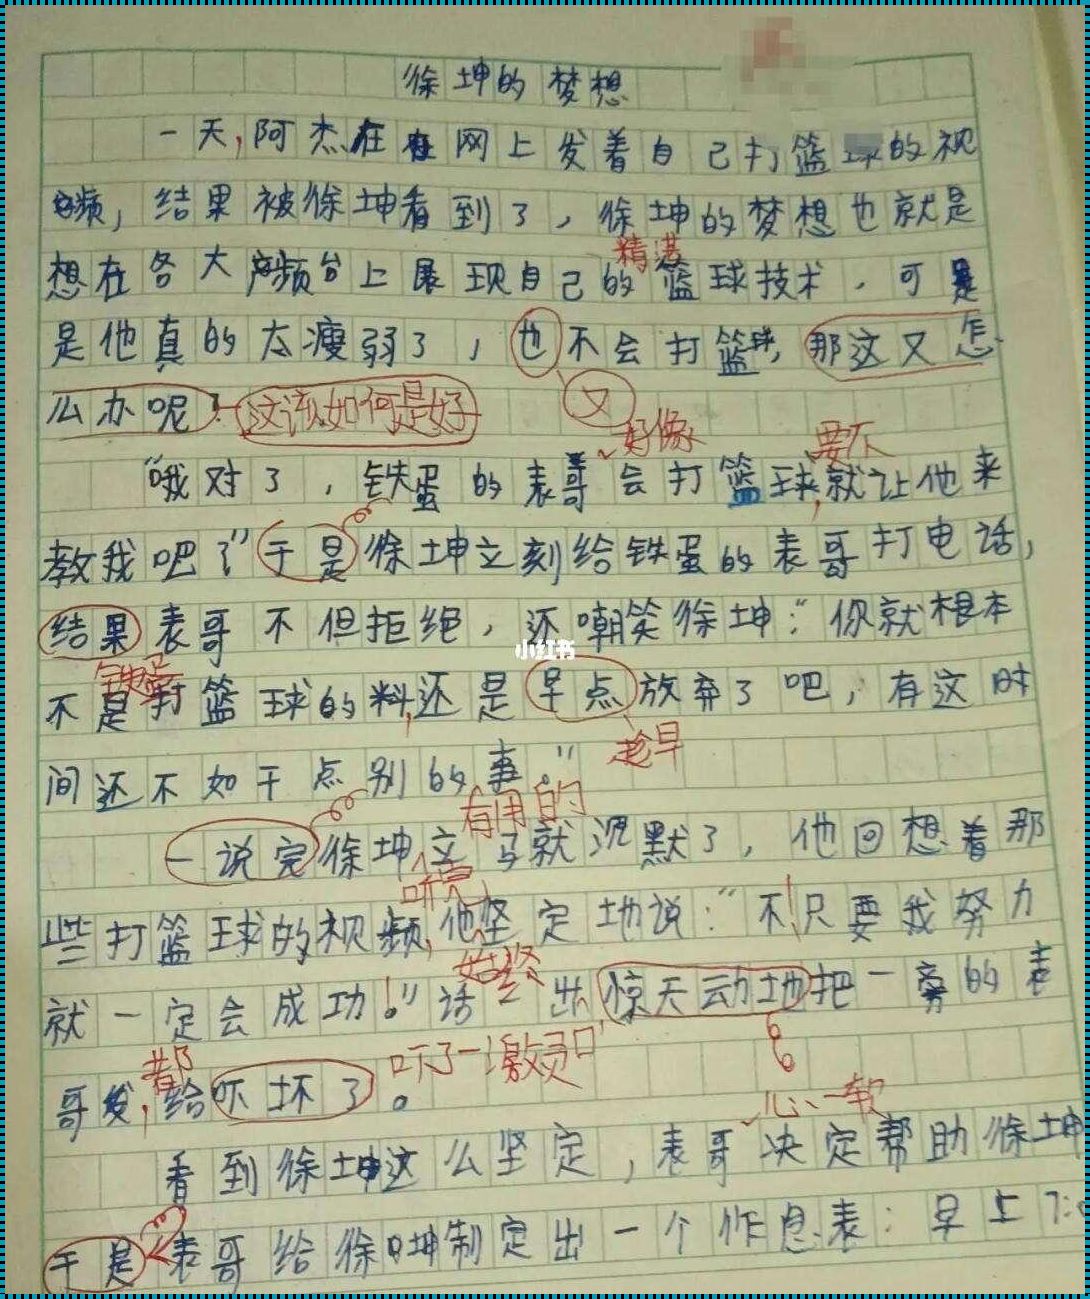 徐坤的梦想
一天,阿杰在网上发着自己打篮球的视
频,结果被徐坤看到了,徐坤的梦想也就是
精湛
想在各大视频台上展现自己的篮球技术,可是
是他真的太瘦弱了,也不会打篮球,那这又怎
么办呢? 这该如何是好 又
好像 要不
"哦对了,铁蛋的表哥会打篮球,就让他来
教我吧!"于是徐坤立刻给铁蛋的表哥打电话,
结果表哥不但拒绝,还嘲笑徐坤:"你就根本
小红书
铁蛋
不是打篮球的料,还是早点放弃了吧,有这时
趁早
间还不如干点别的事。"
有用的
一说完徐坤立马就沉默了,他回想着那
听完
些打篮球的视频,他坚定地说:"不!只要我努力
始终
就一定会成功!"话一出惊天动地把一旁的表
都 吓了一激灵
哥发,给吓坏了。
心一软
看到徐坤这么坚定,表哥决定帮助徐坤
于是表哥给徐坤制定出一个作息表:早上7: